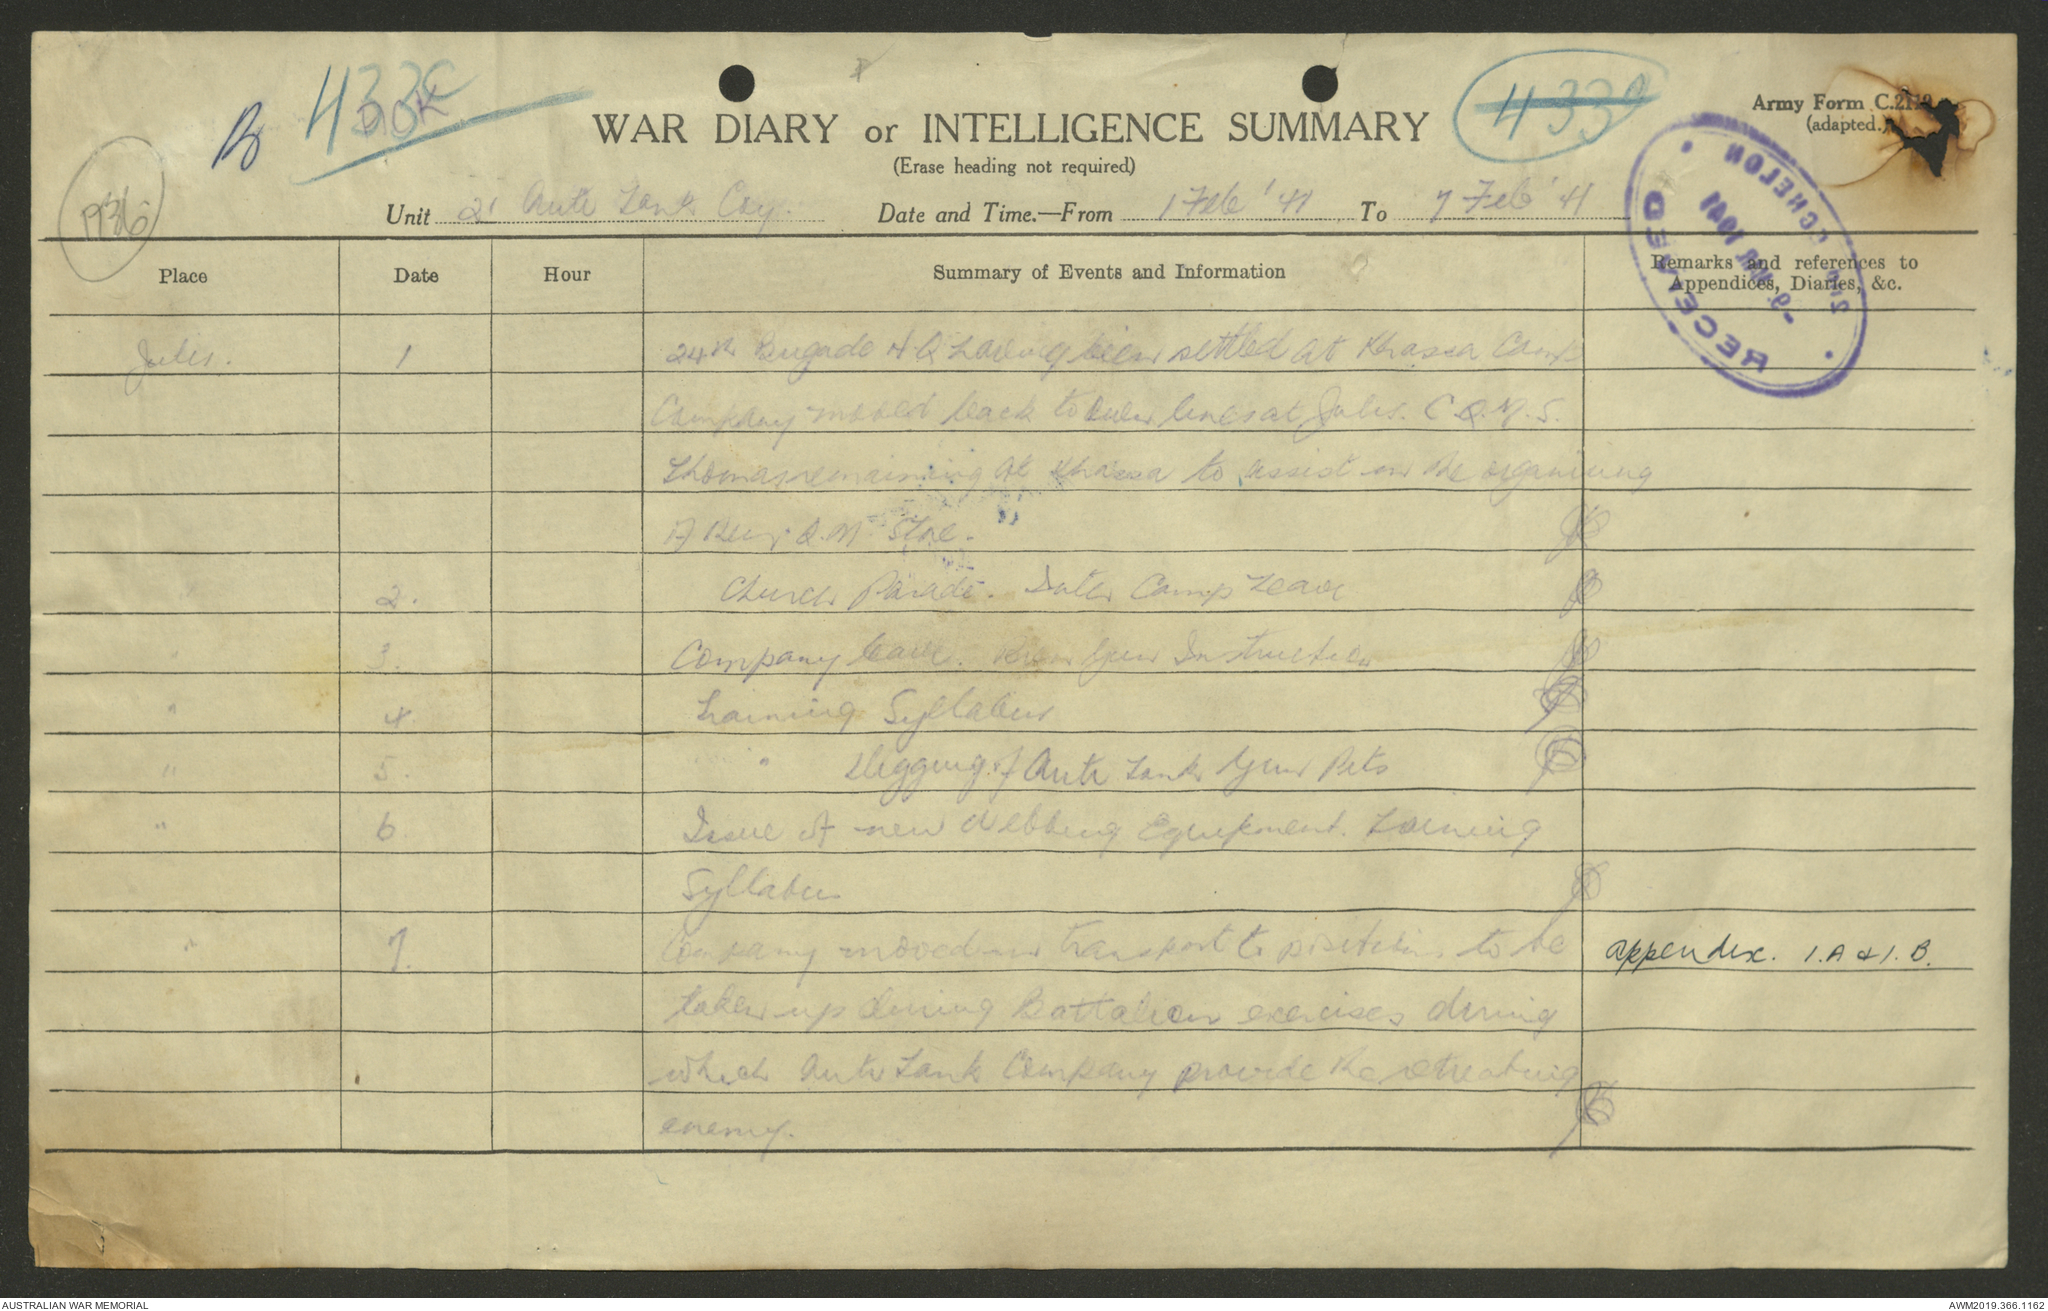 433c
WAR DIARY or INTELLIGENCE SUMMARY
(Erase heading not required)
Army Form C.2118
(adapted.)
P936
Unit 21 Anti Tank Coy. Date and Time.—From 1 Feb '41 To 7 Feb '41
2nd ECHELON
-9 MAR 1941
RECEIVED
Place Date Hour Summary of Events and Information Remarks and references to Appendices, Diaries, &c.
Julis. 1 24th Brigade H Q having been settled at Khassa Camp
Company moved back to lines at Julis. C.Q.M.S.
Thomas remaining at Khassa to assist in the organising
of Q.M. Store.
" 2. Church Parade. Inter Camp Leave
" 3. Company leave. Bren Gun Instruction
" 4. Training Syllabus
" 5. " Digging of Anti Tank Gun Pits
" 6 Issue of new Webbing Equipment. Training
Syllabus
" 7. Company moved in transport to positions to be appendix. 1.A & 1.B.
taken up during Battalion exercises during
which Anti Tank Company provide the retreating
enemy.
AUSTRALIAN WAR MEMORIAL
AWM2019.366.1162